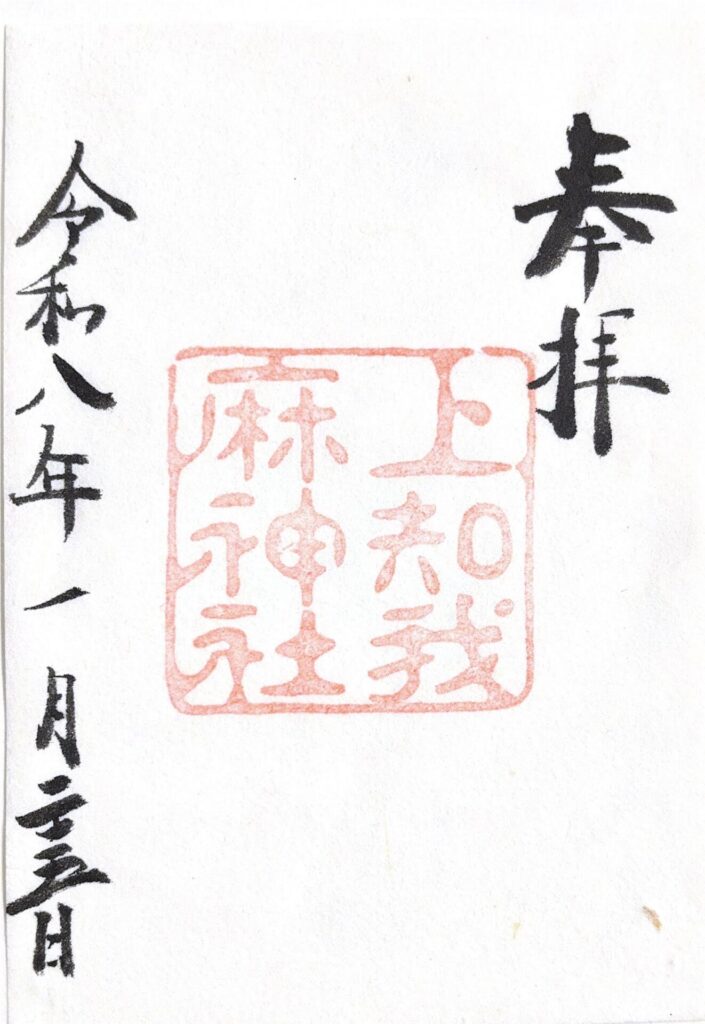 奉拝
上知我
麻神社
令和八年一月二十五日